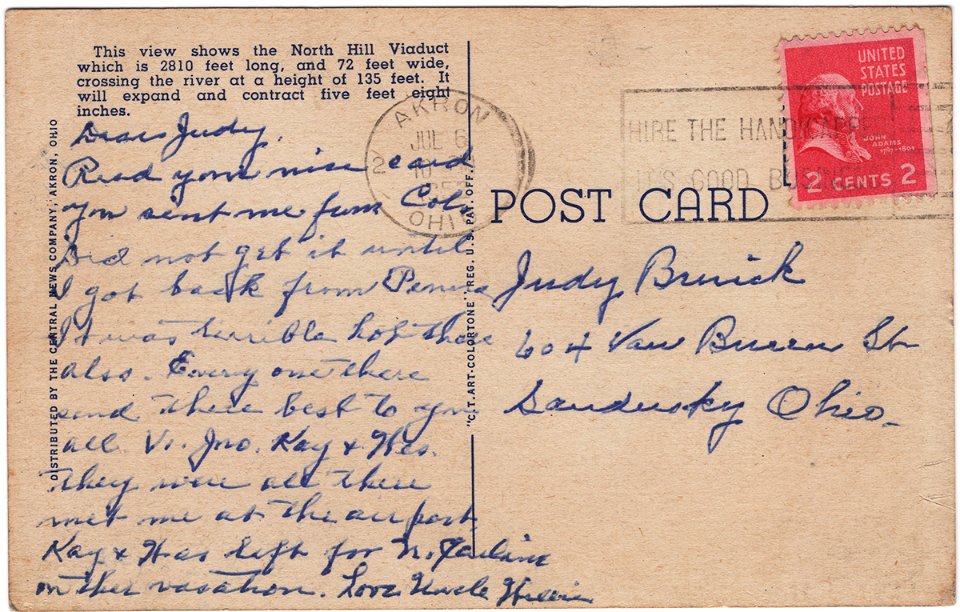 This view shows the North Hill Viaduct
which is 2810 feet long, and 72 feet wide,
crossing the river at a height of 135 feet. It
will expand and contract five feet eight
inches.
DISTRIBUTED BY THE CENTRAL NEWS COMPANY, AKRON, OHIO
Dear Judy,
Read your nice card
you sent me from Colo
Did not get it until
I got back from Penna
It was terrible hot there
also. Every one there
send there best to you
all. Vi. Jno. Kay & Wes.
They were all there
met me at the airport,
Kay & Wes left for N.
on ther vacation. Love Uncle
"C.T. ART-COLORTONE" REG. U.S. PAT. OFF.
AKRON
JUL 6
OHIO
2
HIRE THE HANDICAPPED
IT'S GOOD BUSINESS
UNITED
STATES
POSTAGE
JOHN
ADAMS
1797-1801
2 CENTS 2
POST CARD
Judy
604 Van Buren St
Sandusky Ohio.